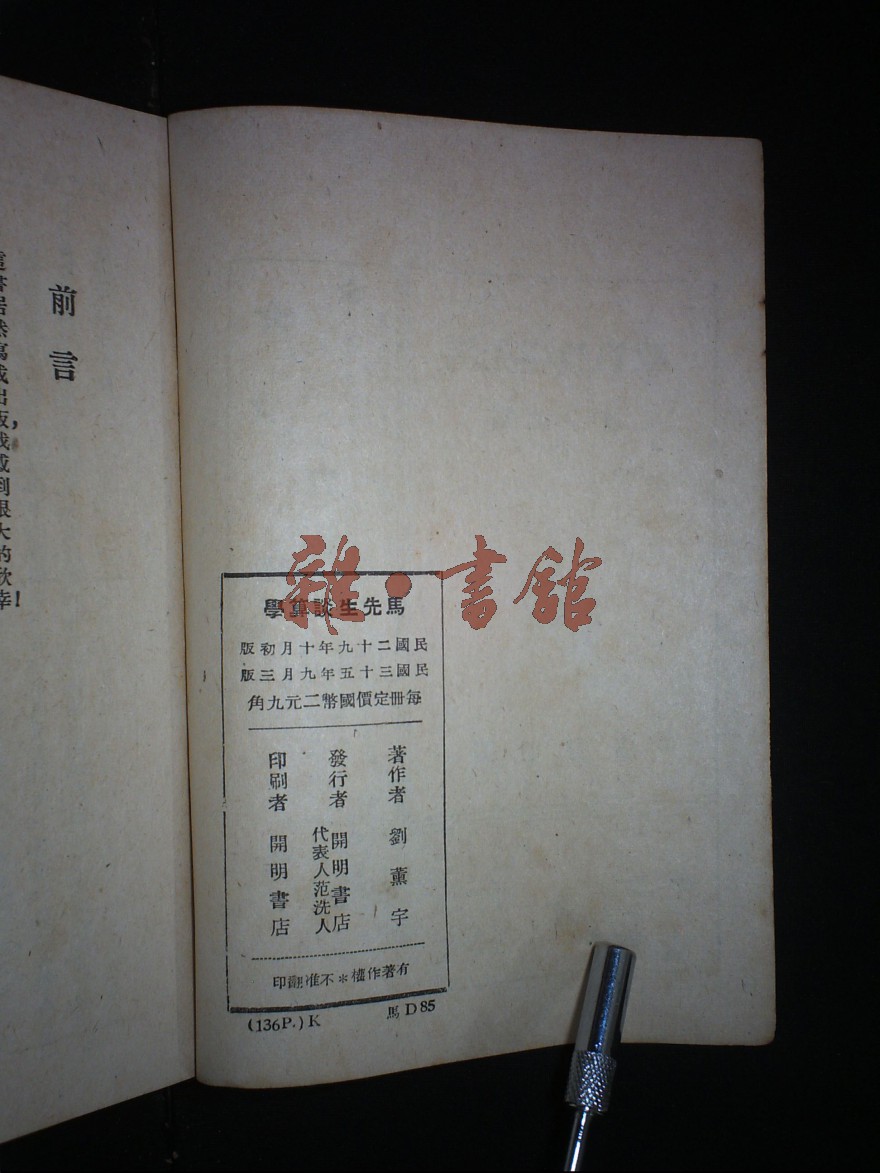 前言
這書居然寫成出版，我感到很大的欣幸！
雜·書館
馬先生談算學
民國二十九年十月初版
民國三十五年九月三版
每冊定價國幣二元九角
著作者 劉薰宇
發行者 開明書店
代表人范洗人
印刷者 開明書店
有著作權＊不准翻印
(136P.) K
馬 D 85